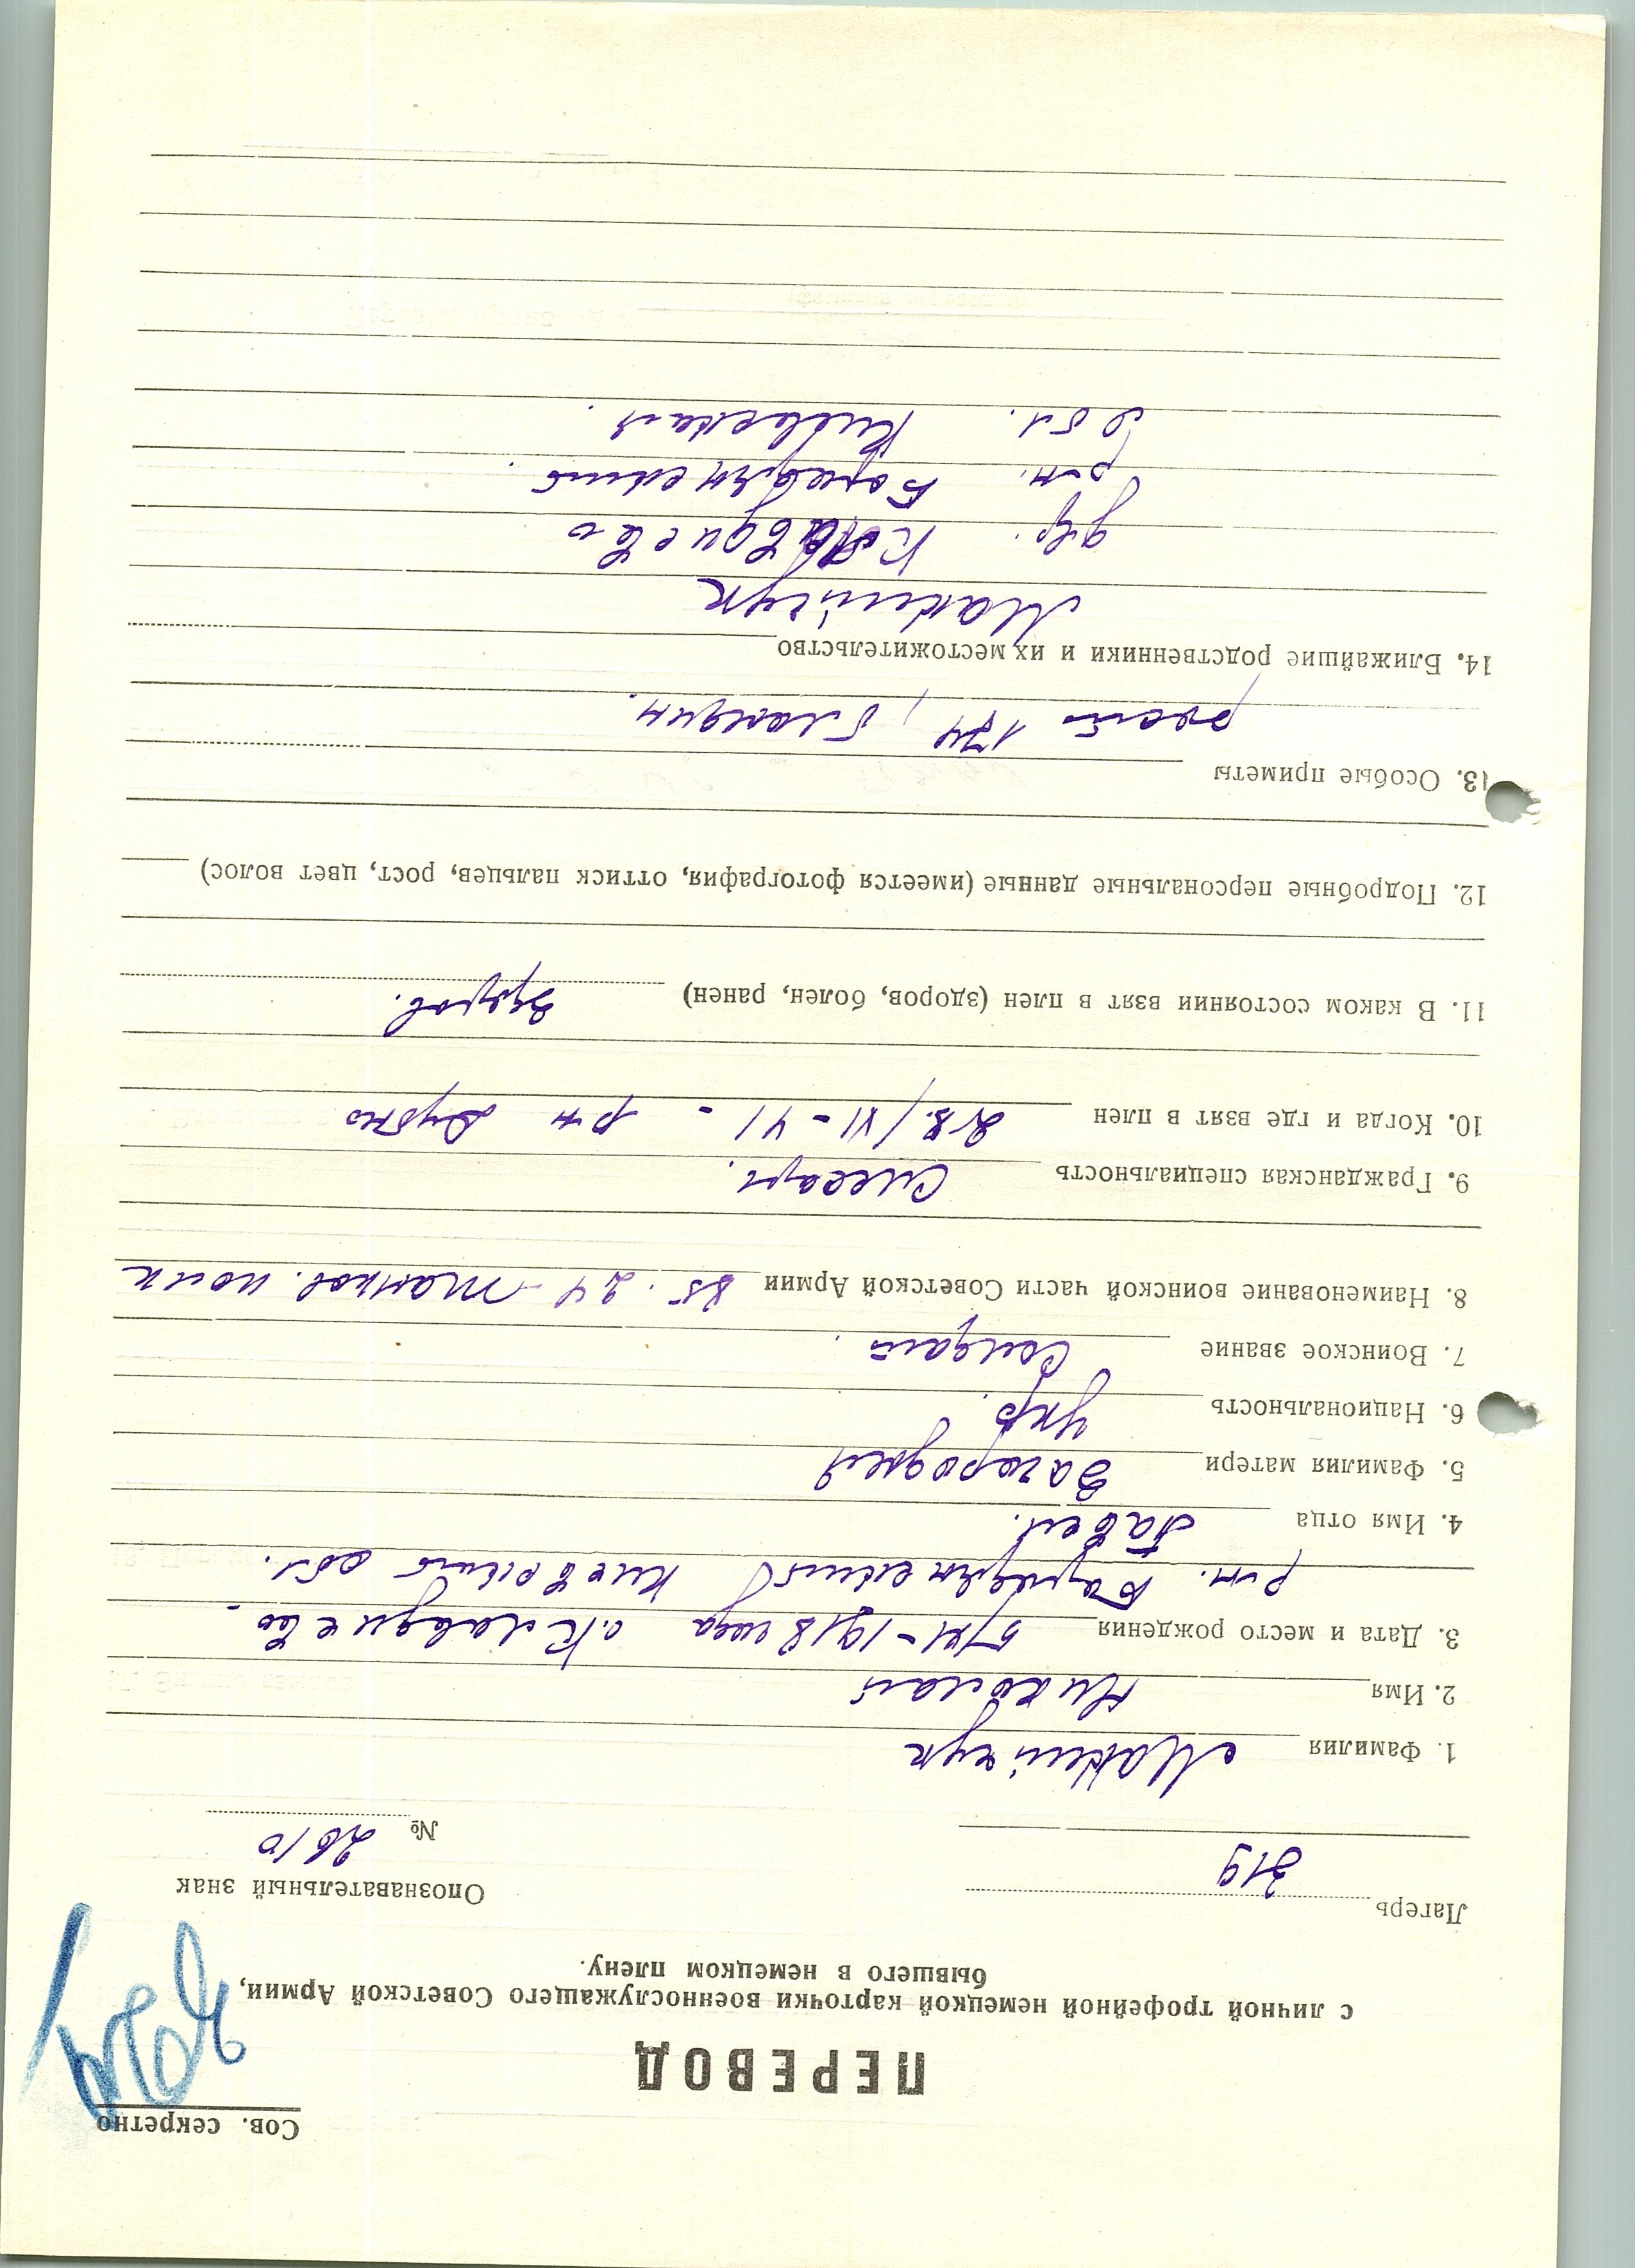 Сов. секретно
ПЕРЕВОД
с личной трофейной немецкой карточки военнослужащего Советской Армии,
бывшего в немецком плену.
Лагерь 319
Опознавательный знак
№ 2610
1. Фамилия
2. Имя Николай
3. Дата и место рождения 5/XI-1918 года с. Клавдиево
р-н. Бородянский Киевский обл.
4. Имя отца Павел.
5. Фамилия матери Загородней
6. Национальность Укр.
7. Воинское звание Солдат.
8. Наименование воинской части Советской Армии 85. 24 танков. полк
9. Гражданская специальность Слесарь.
10. Когда и где взят в плен 28/VI-41 - р-н Дубно
11. В каком состоянии взят в плен (здоров, болен, ранен) здоров.
12. Подробные персональные данные (имеется фотография, оттиск пальцев, рост, цвет волос)
13. Особые приметы
рост 174, блондин.
14. Ближайшие родственники и их местожительство
дер. Клавдиево
р-н. Бородянский.
обл. Киевская.